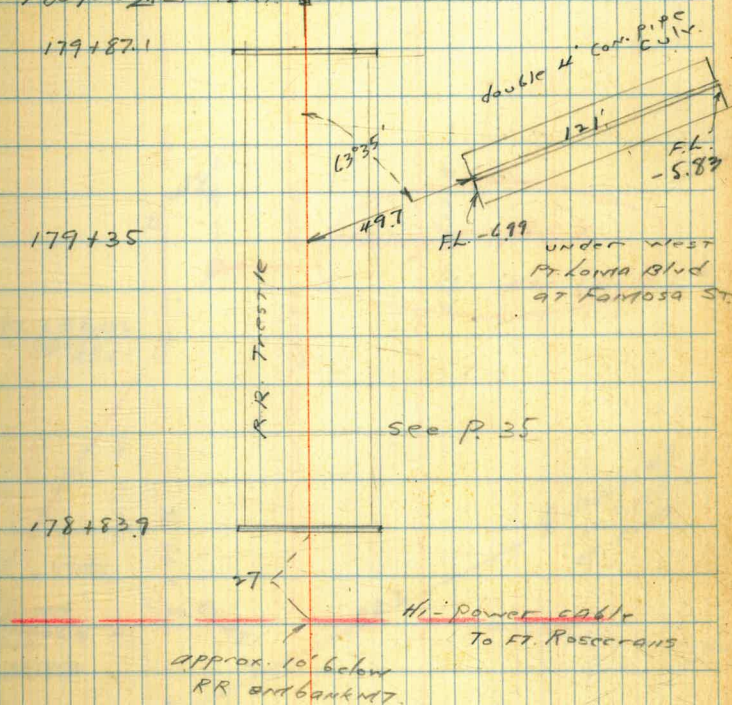 179+87.1
double 4' con. pipe
culv.
121'
63°35'
F.L.
-5.83
49.7
F.L. -6.99
179+35
under west
Pt. Loma Blvd
at Famosa St.
R.R. Trestle
see P. 35
178+83.9
27
Hi-power cable
To FT. Rosecrans
approx. 10' below
RR embankmt.